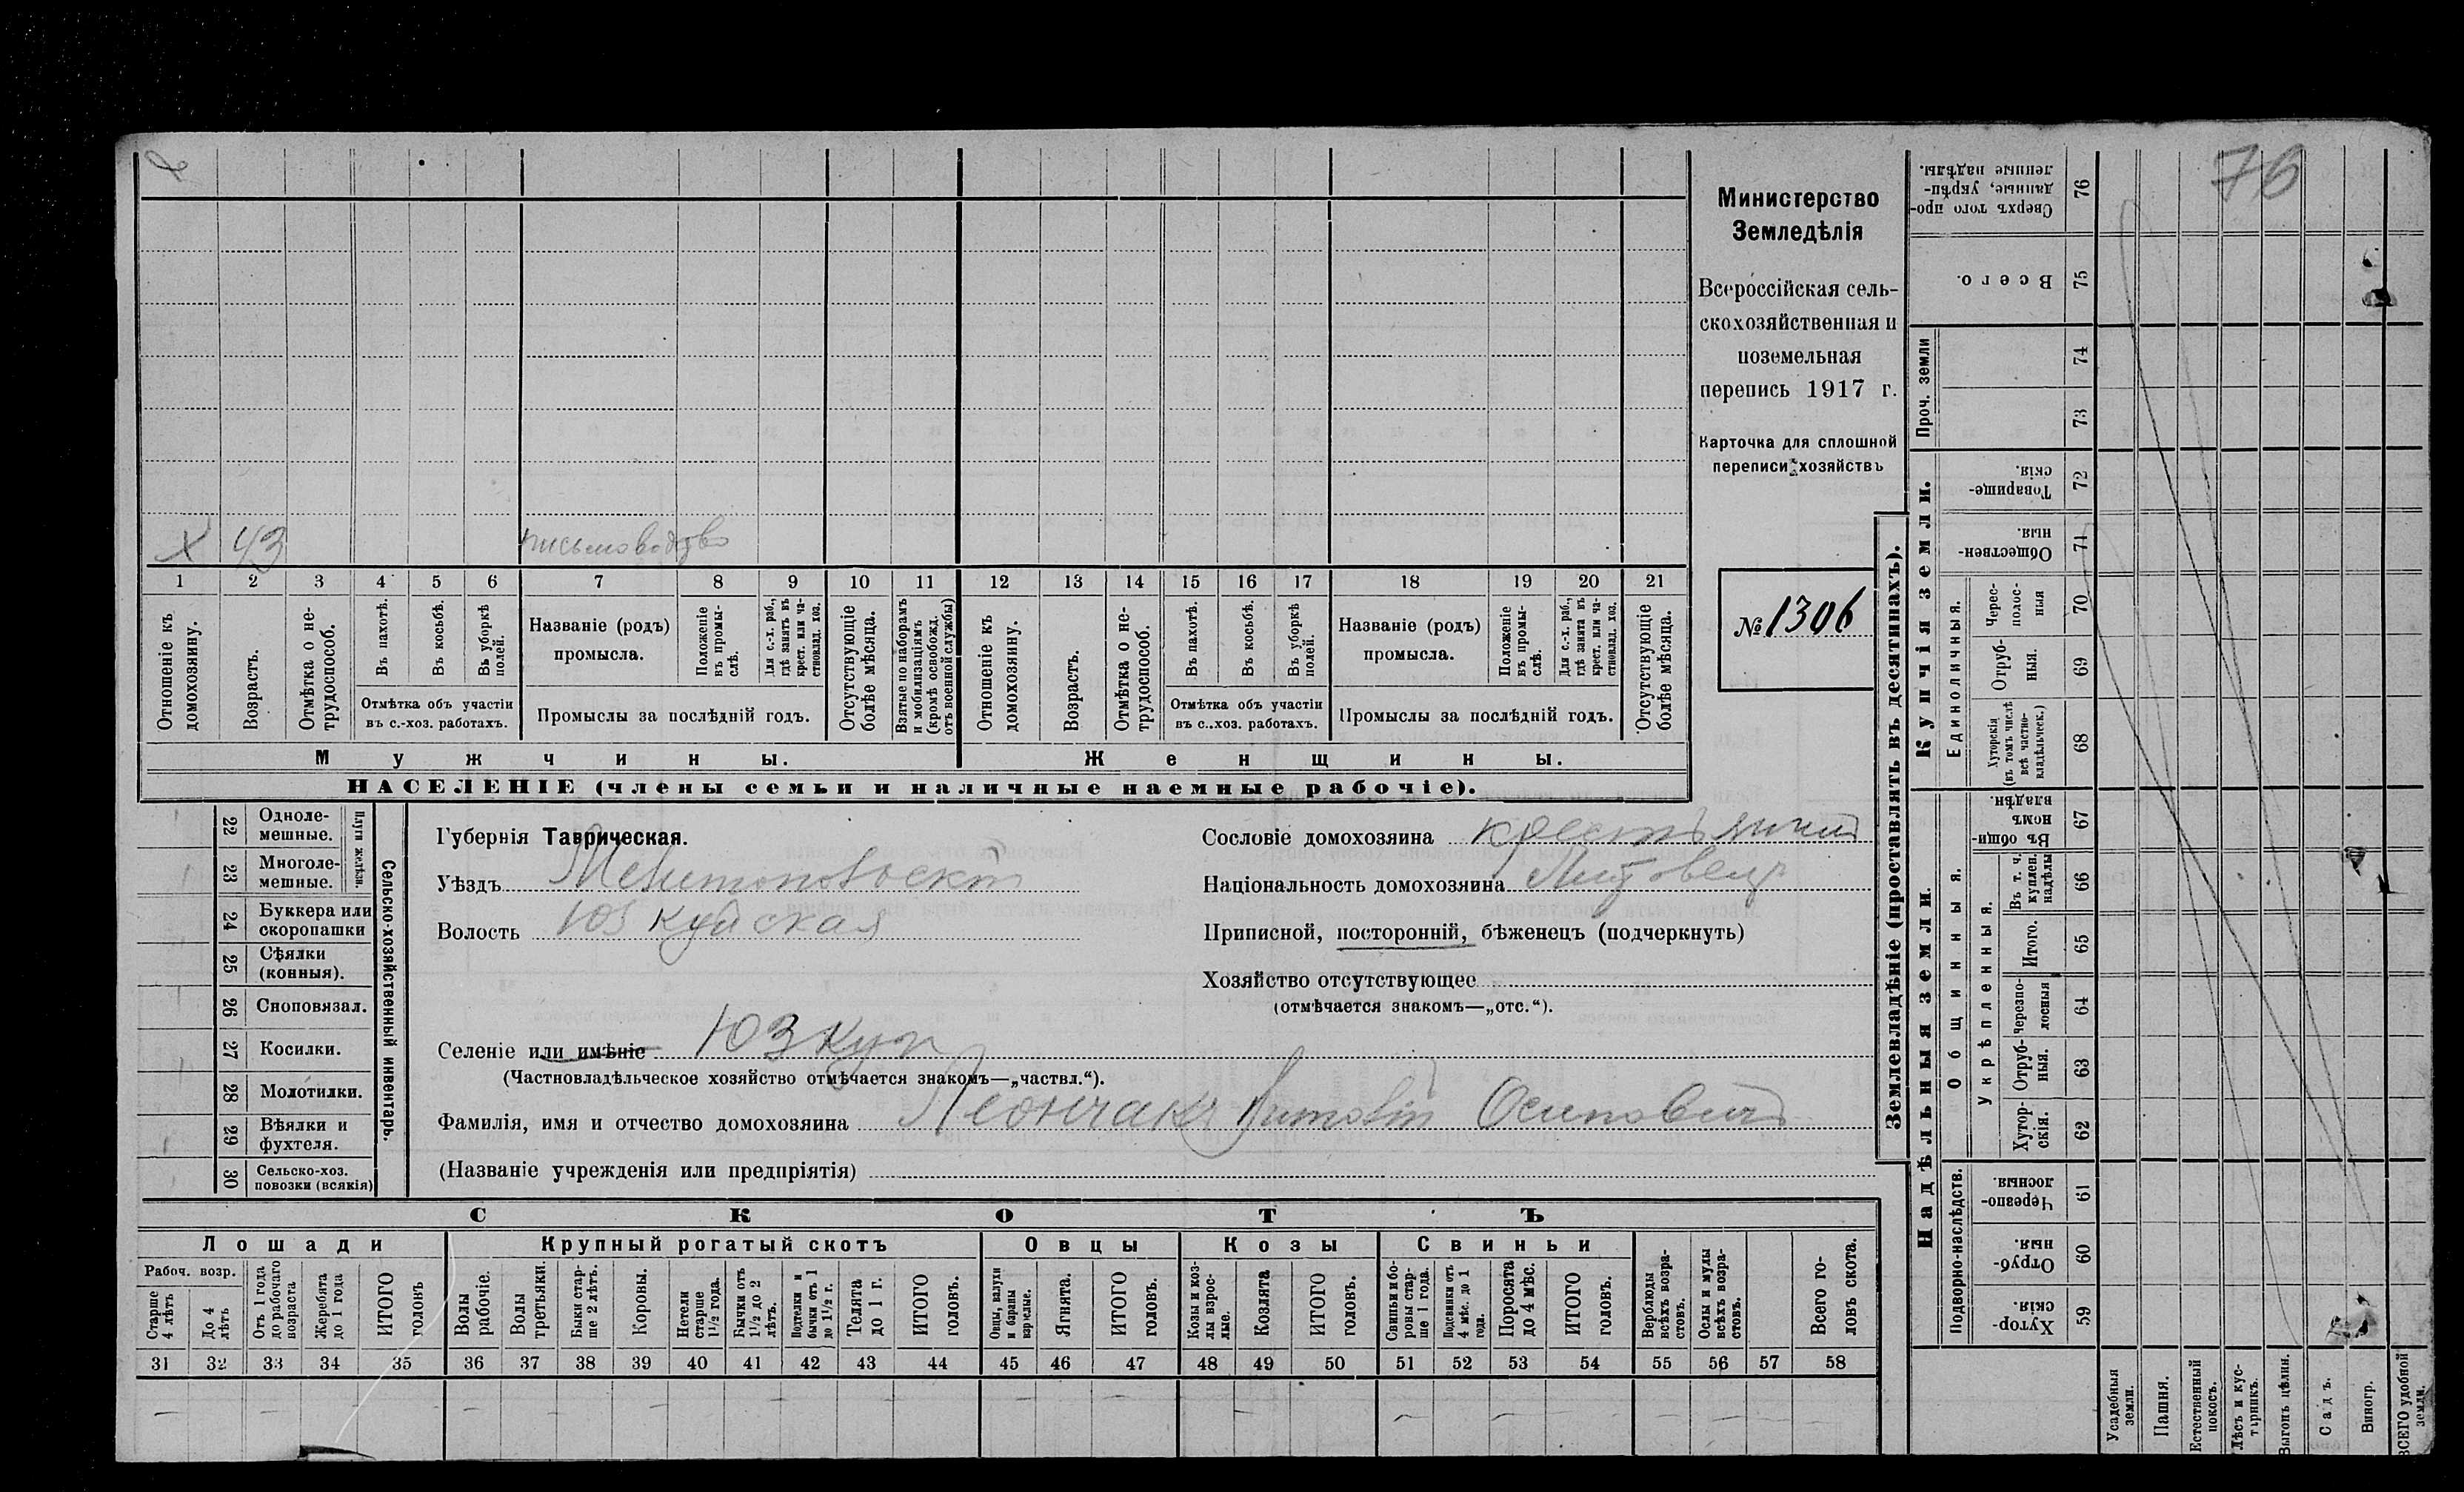 76
Министерство
Земледѣлія
Всероссійская сель-
скохозяйственная и
поземельная
перепись 1917 г.
Карточка для сплошной
переписи хозяйствъ
№ 1306
X 43 письмоводство
1 2 3 4 5 6 7 8 9 10 11 12 13 14 15 16 17 18 19 20 21
Отношеніе къ домохозяину.
Возрастъ.
Отмѣтка о не-трудоспособ.
Въ пахотѣ.
Въ косьбѣ.
Въ уборкѣ полей.
Отмѣтка объ участіи
въ с.-хоз. работахъ.
Названіе (родъ)
промысла.
Положеніе въ промы-слѣ.
Для с.-х. раб., гдѣ занятъ въ крест. или ча-стновлад. хоз.
Промыслы за послѣдній годъ.
Отсутствующіе болѣе мѣсяца.
Взятые по наборамъ и мобилизаціямъ (кромѣ освобожд. отъ военной службы)
Отношеніе къ домохозяину.
Возрастъ.
Отмѣтка о не-трудоспособ.
Въ пахотѣ.
Въ косьбѣ.
Въ уборкѣ полей.
Отмѣтка объ участіи
въ с..хоз. работахъ.
Названіе (родъ)
промысла.
Положеніе въ промы-слѣ.
Для с.-х. раб., гдѣ занята въ крест. или ча-стновлад. хоз.
Промыслы за послѣдній годъ.
Отсутствующіе болѣе мѣсяца.
Мужчины. Женщины.
НАСЕЛЕНІЕ (члены семьи и наличные наемные рабочіе).
22 Одноле-мешные.
23 Многоле-мешные.
Плуги желѣзн.
24 Буккера или скоропашки
25 Сѣялки (конныя).
26 Сноповязал.
27 Косилки.
28 Молотилки.
29 Вѣялки и фухтеля.
30 Сельско-хоз. повозки (всякія)
Сельско-хозяйственный инвентарь.
Губернія Таврическая.
Уѣздъ Мелитопольскій
Волость Юзкуйская
Селеніе или имѣніе Юзкуи
(Частновладѣльческое хозяйство отмѣчается знакомъ—„частвл.“).
Фамилія, имя и отчество домохозяина Леончакъ Осиповичъ
(Названіе учрежденія или предпріятія)
Сословіе домохозяина крестьянинъ
Національность домохозяина Литовецъ
Приписной, посторонній, бѣженецъ (подчеркнуть)
Хозяйство отсутствующее
(отмѣчается знакомъ—„отс.“).
СКОТЪ
Лошади Крупный рогатый скотъ Овцы Козы Свиньи
Рабоч. возр.
Старше 4 лѣтъ
До 4 лѣтъ
Отъ 1 года до рабочаго возраста
Жеребята до 1 года
ИТОГО головъ
Волы рабочіе.
Волы третьяки.
Быки стар-ше 2 лѣтъ.
Коровы.
Нетели старше 1 1/2 года.
Бычки отъ 1 1/2 до 2 лѣтъ.
Подтелки и бычки отъ 1 до 1 1/2 г.
Телята до 1 г.
ИТОГО головъ.
Овцы, валухи и бараны взрослые.
Ягнята.
ИТОГО головъ.
Козы и коз-лы взрос-лые.
Козлята
ИТОГО головъ.
Свиньи и бо-ровы стар-ше 1 года.
Подсвинки отъ 4 мѣс. до 1 года.
Поросята до 4 мѣс.
ИТОГО головъ.
Верблюды всѣхъ возра-стовъ.
Ослы и мулы всѣхъ возра-стовъ.
Всего го-ловъ скота.
31 32 33 34 35 36 37 38 39 40 41 42 43 44 45 46 47 48 49 50 51 52 53 54 55 56 57 58
Землевладѣніе (проставлять въ десятинахъ).
Купчія земли.
Надѣльныя земли.
Сверхъ того про-данные, укрѣп-ленные надѣлы. 76
Всего. 75
Проч. земли
74
73
Товарище-скія. 72
Обществен-ныя 71
Единоличныя.
Черес-полос-ныя 70
Отруб-ныя. 69
Хуторскія (въ томъ числѣ всѣ частно-владѣльческ.) 68
Общинныя.
Въ общин-номъ владѣн. 67
Укрѣпленныя.
Въ т. ч. куплен. надѣлы 66
Итого. 65
Черезпо-лосныя 64
Отруб-ныя. 63
Хутор-скія. 62
Подворно-наслѣдств.
Черезпо-лосныя. 61
Отруб-ныя. 60
Хутор-скія. 59
Усадебныя земли.
Пашня.
Естественный покосъ.
Лѣсъ и кус-тарникъ.
Выгонъ цѣлин.
Садъ.
Виногр.
ВСЕГО удобной земли.